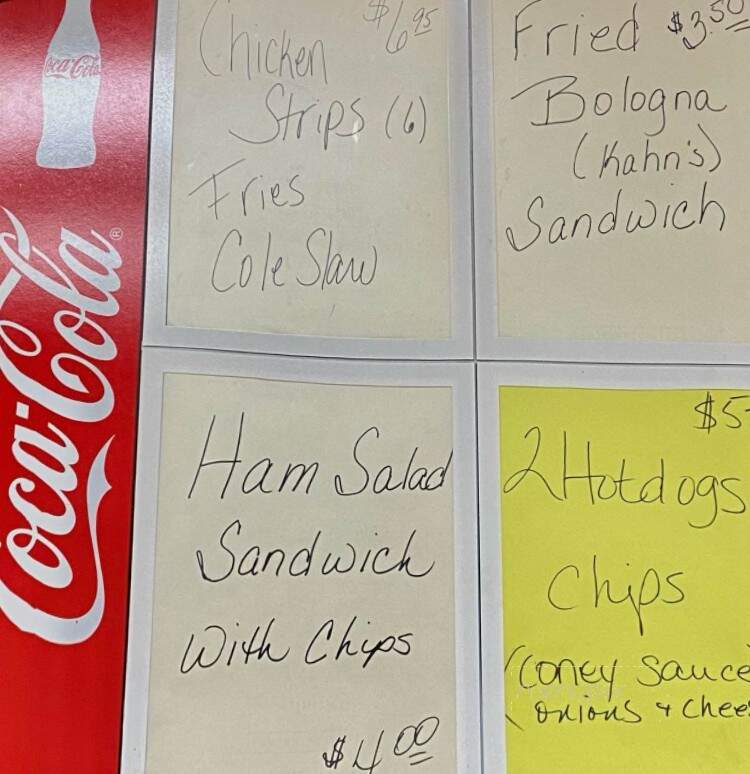 Coca-Cola
Coca-Cola®
$6.95
Chicken
Strips (6)
Fries
Cole Slaw
Fried $3.50
Bologna
(Kahn's)
Sandwich
Ham Salad
Sandwich
With Chips
$4.00
$5
2 Hotdogs
Chips
(Coney Sauce
onions + chee